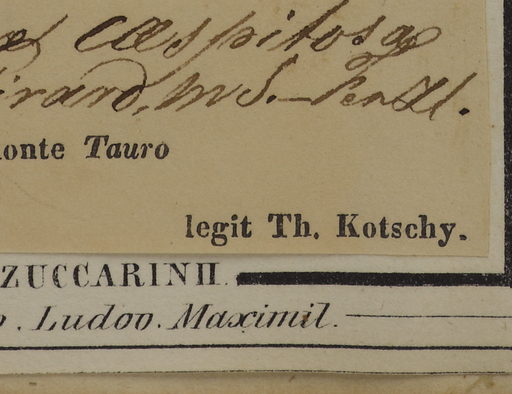 cæspitosa
irard, m S. – Fenzl.
onte Tauro
legit Th. Kotschy.
ZUCCARINII.
. Ludov. Maximil.